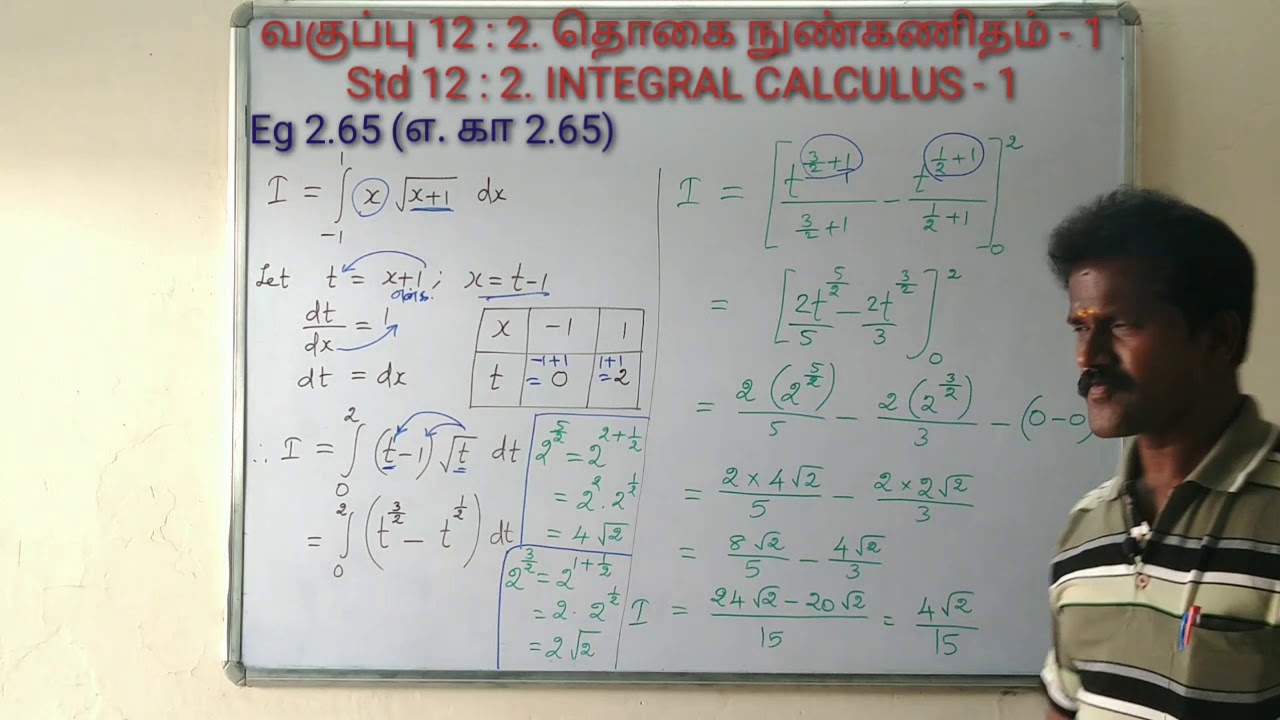 வகுப்பு 12 : 2. தொகை நுண்கணிதம் - 1
Std 12 : 2. INTEGRAL CALCULUS - 1
Eg 2.65 (எ. கா 2.65)
I = ∫₋₁¹ x √(x+1) dx
Let t = x+1 ; x = t-1
dt/dx = 1
dt = dx
x | -1 | 1
t | -1+1 = 0 | 1+1 = 2
∴ I = ∫₀² (t-1) √t dt
= ∫₀² (t^(3/2) - t^(1/2)) dt
2^(5/2) = 2^(2+1/2)
= 2² · 2^(1/2)
= 4 √2
2^(3/2) = 2^(1+1/2)
= 2 · 2^(1/2)
= 2 √2
I = [ t^(3/2+1) / (3/2+1) - t^(1/2+1) / (1/2+1) ]₀²
= [ 2t^(5/2) / 5 - 2t^(3/2) / 3 ]₀²
= 2 (2^(5/2)) / 5 - 2 (2^(3/2)) / 3 - (0-0)
= 2 × 4√2 / 5 - 2 × 2√2 / 3
= 8√2 / 5 - 4√2 / 3
I = (24√2 - 20√2) / 15 = 4√2 / 15